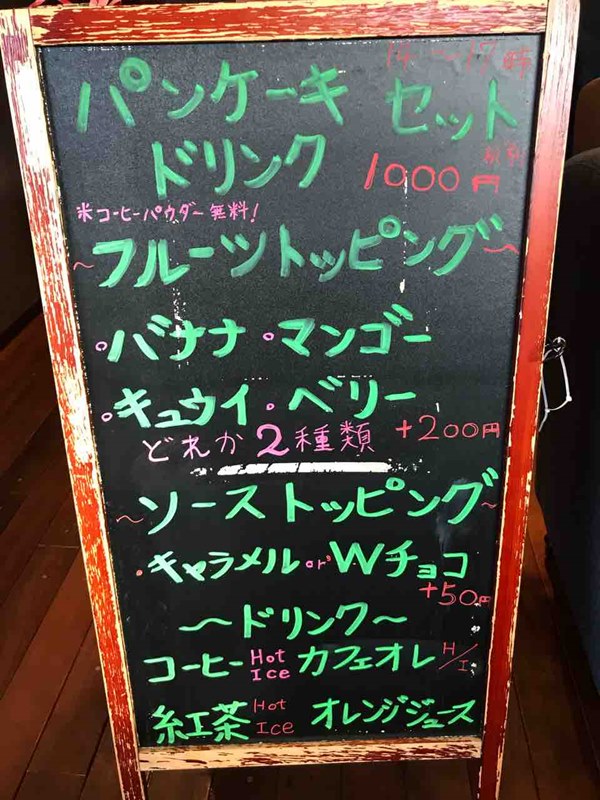 14〜17時
パンケーキ セット
ドリンク 1000円
税別
※コーヒーパウダー無料!
〜フルーツトッピング〜
・バナナ ・マンゴー
・キュウイ ・ベリー
どれか2種類 +200円
〜ソーストッピング〜
・キャラメル or Wチョコ
+50円
〜ドリンク〜
コーヒー Hot Ice カフェオレ H/I
紅茶 Hot Ice オレンジジュース